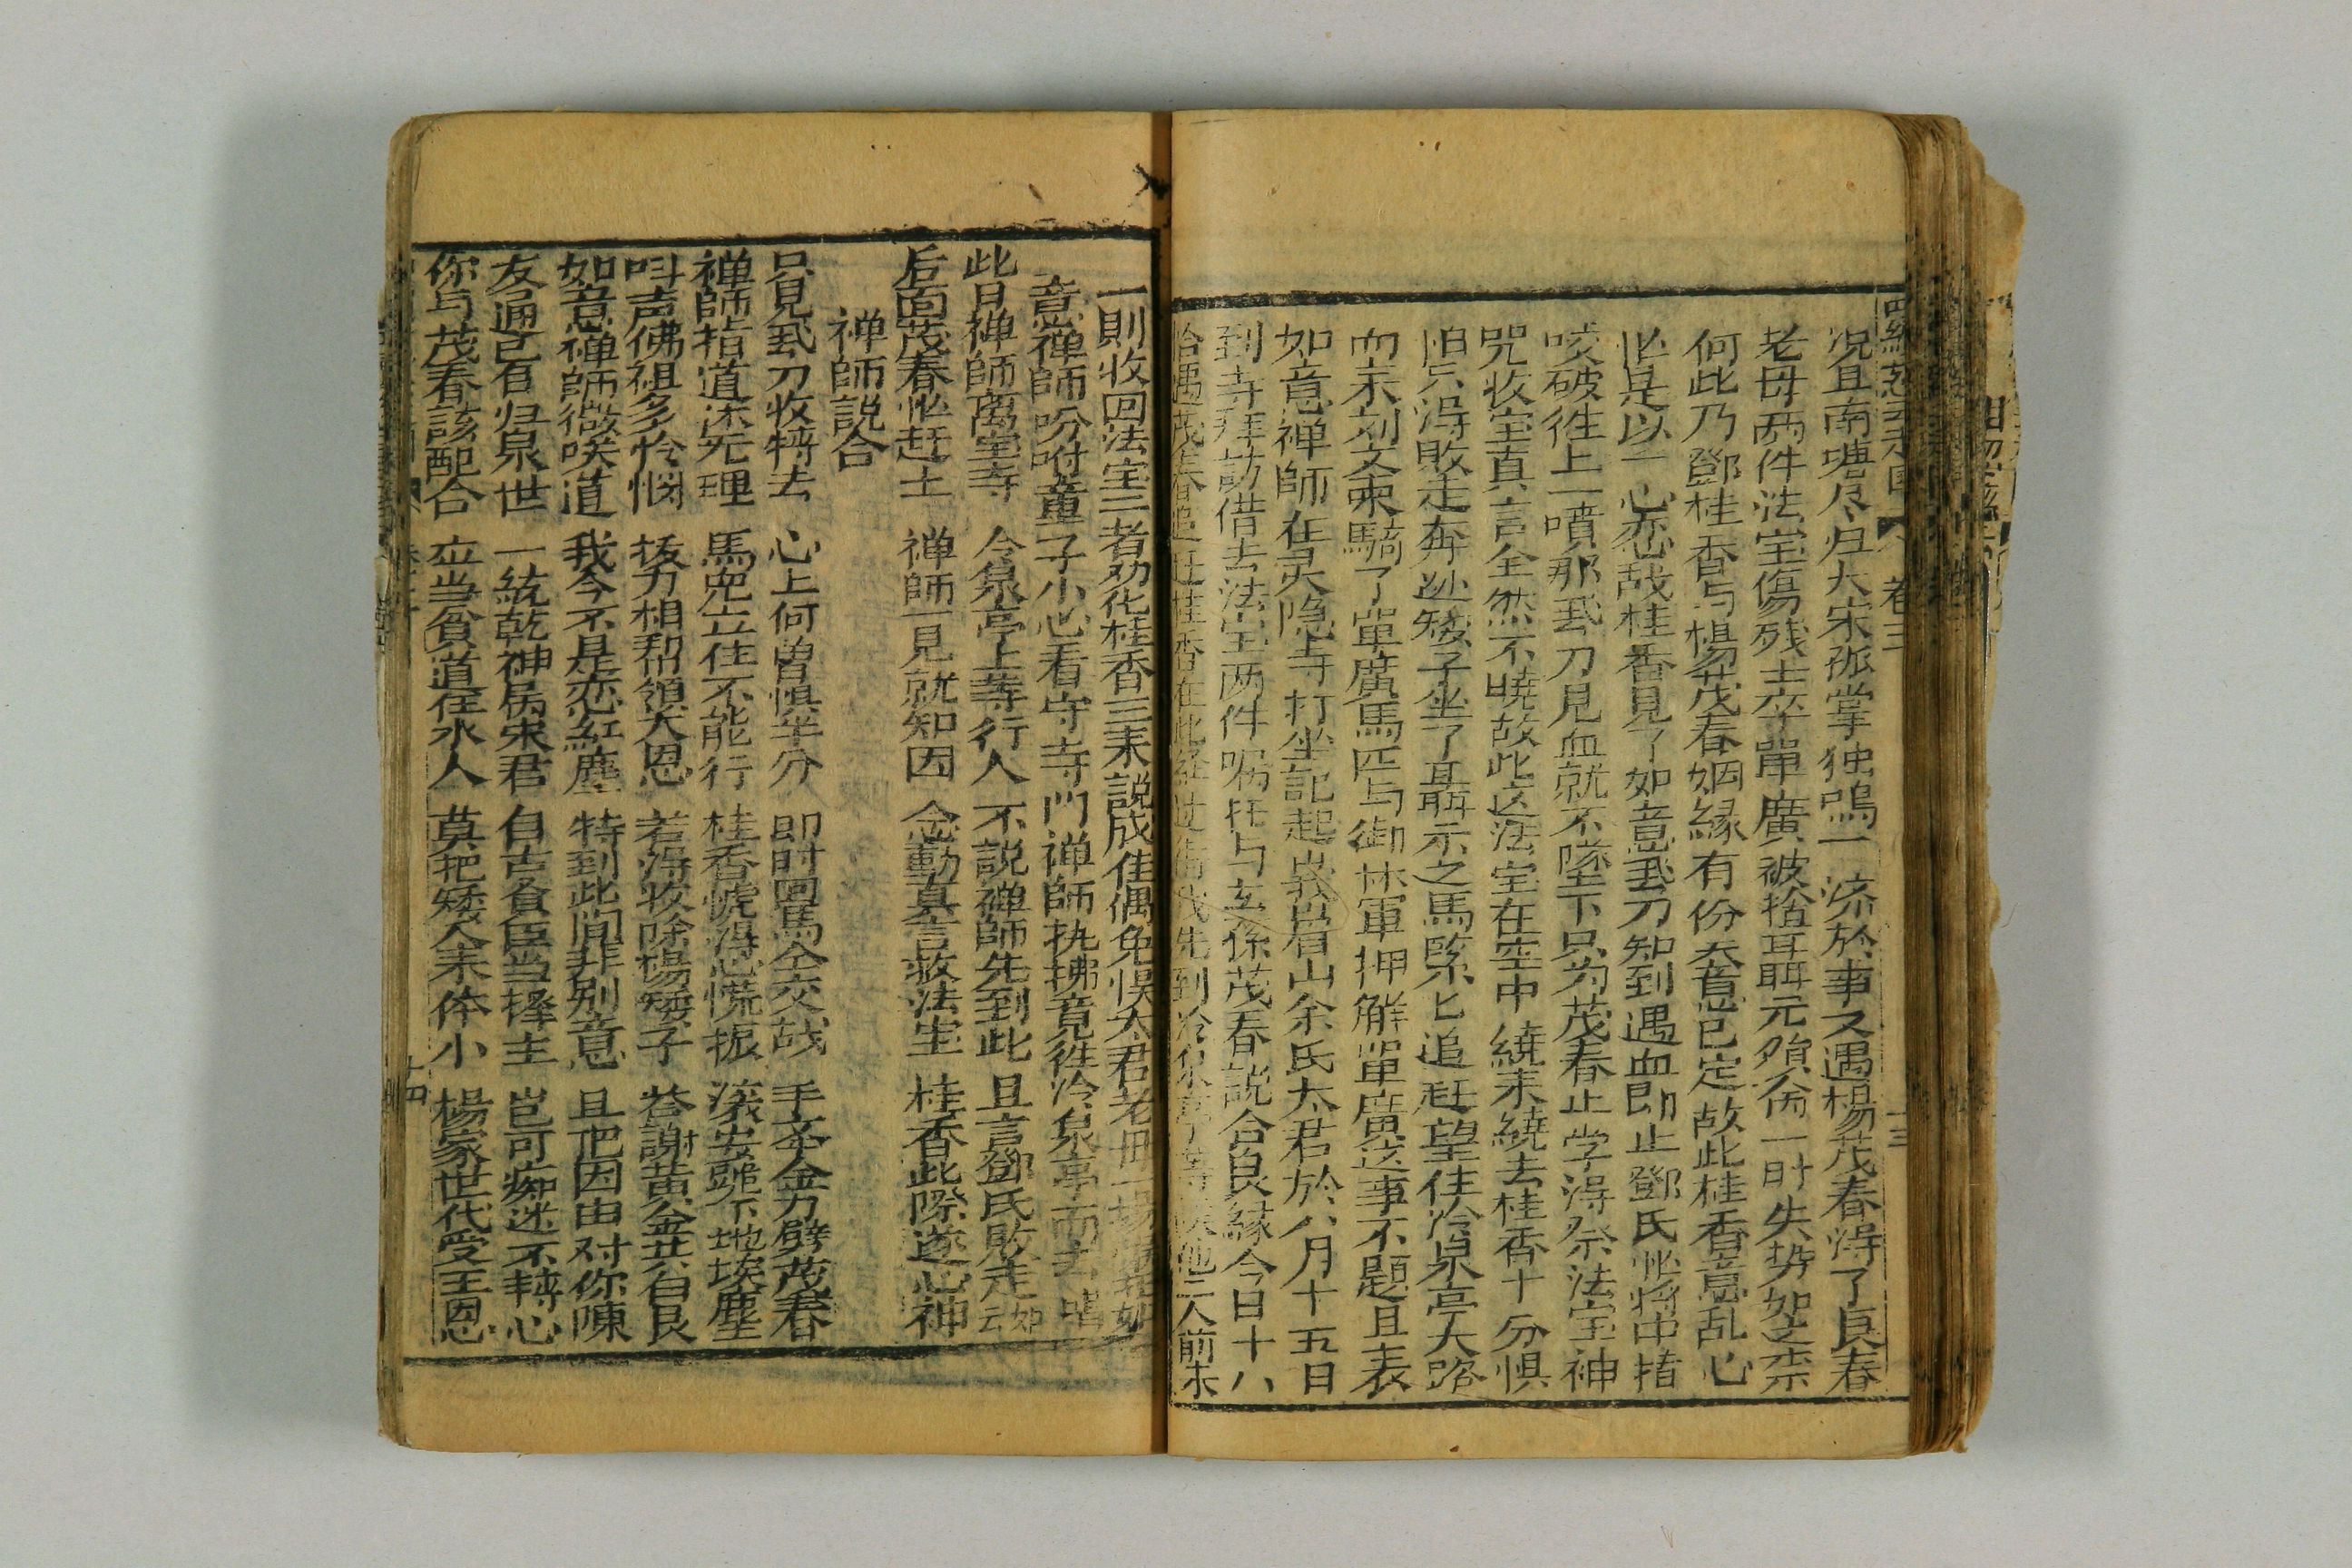 况且南塘尽归大宋孤掌独鸣一濟於事又遇楊茂春得了長春
老母两件法宝傷残士卒單廣被捨耳聑元殞命一时失势如之柰
何此乃鄧桂香与楊茂春姻緣有份天意已定故此桂香意乱心
忙是以一心恋战桂香見了如意戒刀知到遇血即止鄧氏忙将中指
咬破徃上一噴那戒刀見血就不墜下只为茂春止学得祭法宝神
咒收宝真言全然不曉故此这法宝在空中繞来繞去桂香十分惧
怕只得敗走奔逃矮子坐了聑示之馬緊匕追赶望住冷泉亭大路
而来刘文東騎了單廣馬匹与御林軍押解單廣这事不題且表
如意禅師在灵隐寺打坐記起峩眉山余氏太君於八月十五日
到寺拜訪借去法宝两件嘱托与玄孫茂春説合良緣今日十八
恰遇茂春追赶桂香在此经过待我先到冷泉亭等候他二人前来
卷三
十三
一則收回法宝二者劝化桂香三来説成佳偶免悞太君老母一塲
意禅師吩咐童子小心看守寺門禅師执拂竟徃冷泉亭而去唱
此日禅師离宝寺 令泉亭上等行人 不説禅師先到此 且言鄧氏敗走云
后面茂春忙赶上 禅師一見就知因 念動真言救法宝 桂香此際遂心神
禅師説合
只見戒刀收转去 心上何曽惧半分 即时回馬仝交战 手夲金刀劈茂春
禅師指道还元理 馬児立住不能行 桂香唬得心慌振 滚安雕下地埃塵
呌声佛祖多怜悯 抜刀相帮領大恩 若得收除楊矮子 荅謝黄金共白艮
如意禅師微唉道 我今不是恋紅塵 特到此間非别意 且把因由对你陳
友通已有归泉世 一統乾神属宋君 自古貟臣当擇主 岂可痴迷不轉心
你与茂春該配合 应当貧道徃氷人 莫把矮人来体小 楊家世代受王恩
十四